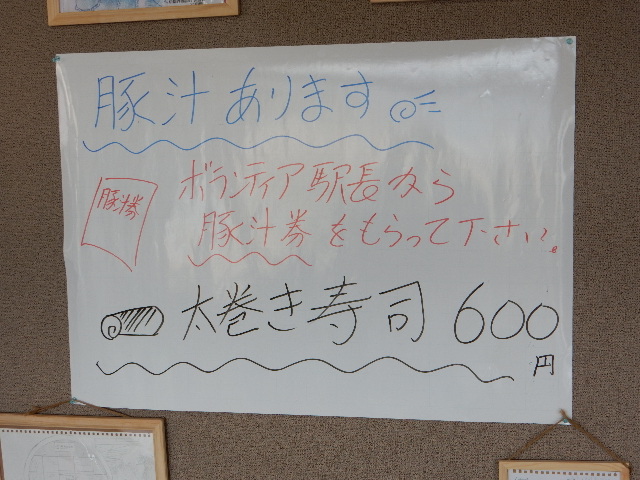 豚汁あります
ボランティア駅長から
豚汁券
豚汁券をもらって下さい。
太巻き寿司 600
円